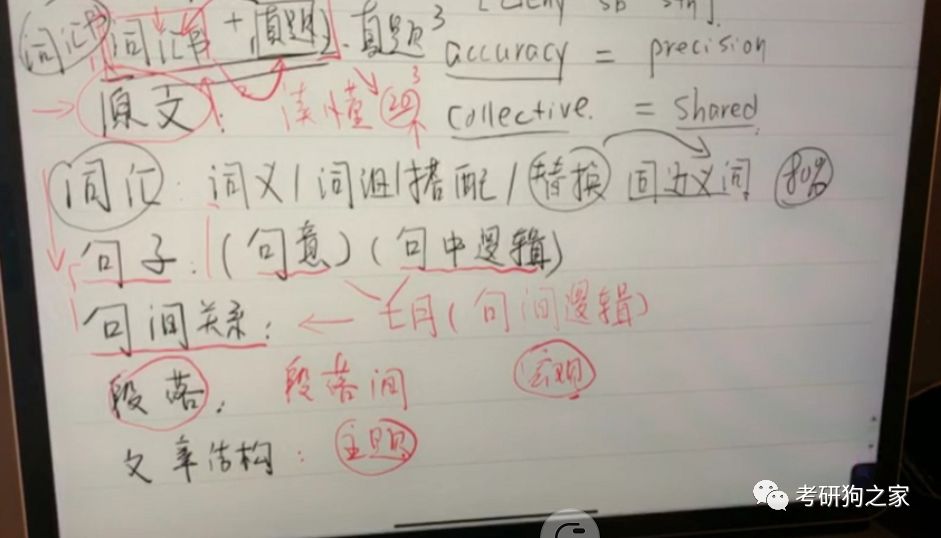 [deny sb sth].
词汇书 词汇书 + 真题2. 真题3 accuracy = precision
原文: 读懂 20 3 collective. = shared
词汇: 词义/词组/搭配/替换 同近义词 80%
句子: (句意) (句中逻辑)
句间关系: ← 七月(句间逻辑)
段落: 段落间 宏观
文章结构: 主题
考研狗之家